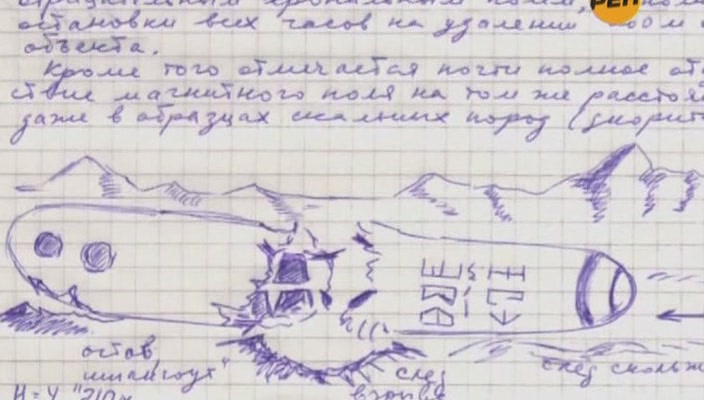 остановки всех часов на удалении
объекта.
Кроме того отмечается почти полное отс
ствие магнитного поля на том же расстоя
даже в образцах скальных пород (диорит
остов
шпангоут"
след
взрыва
след скольж
РЕН